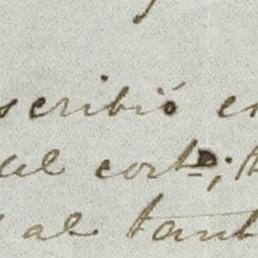 scribió e
del cort
al tant